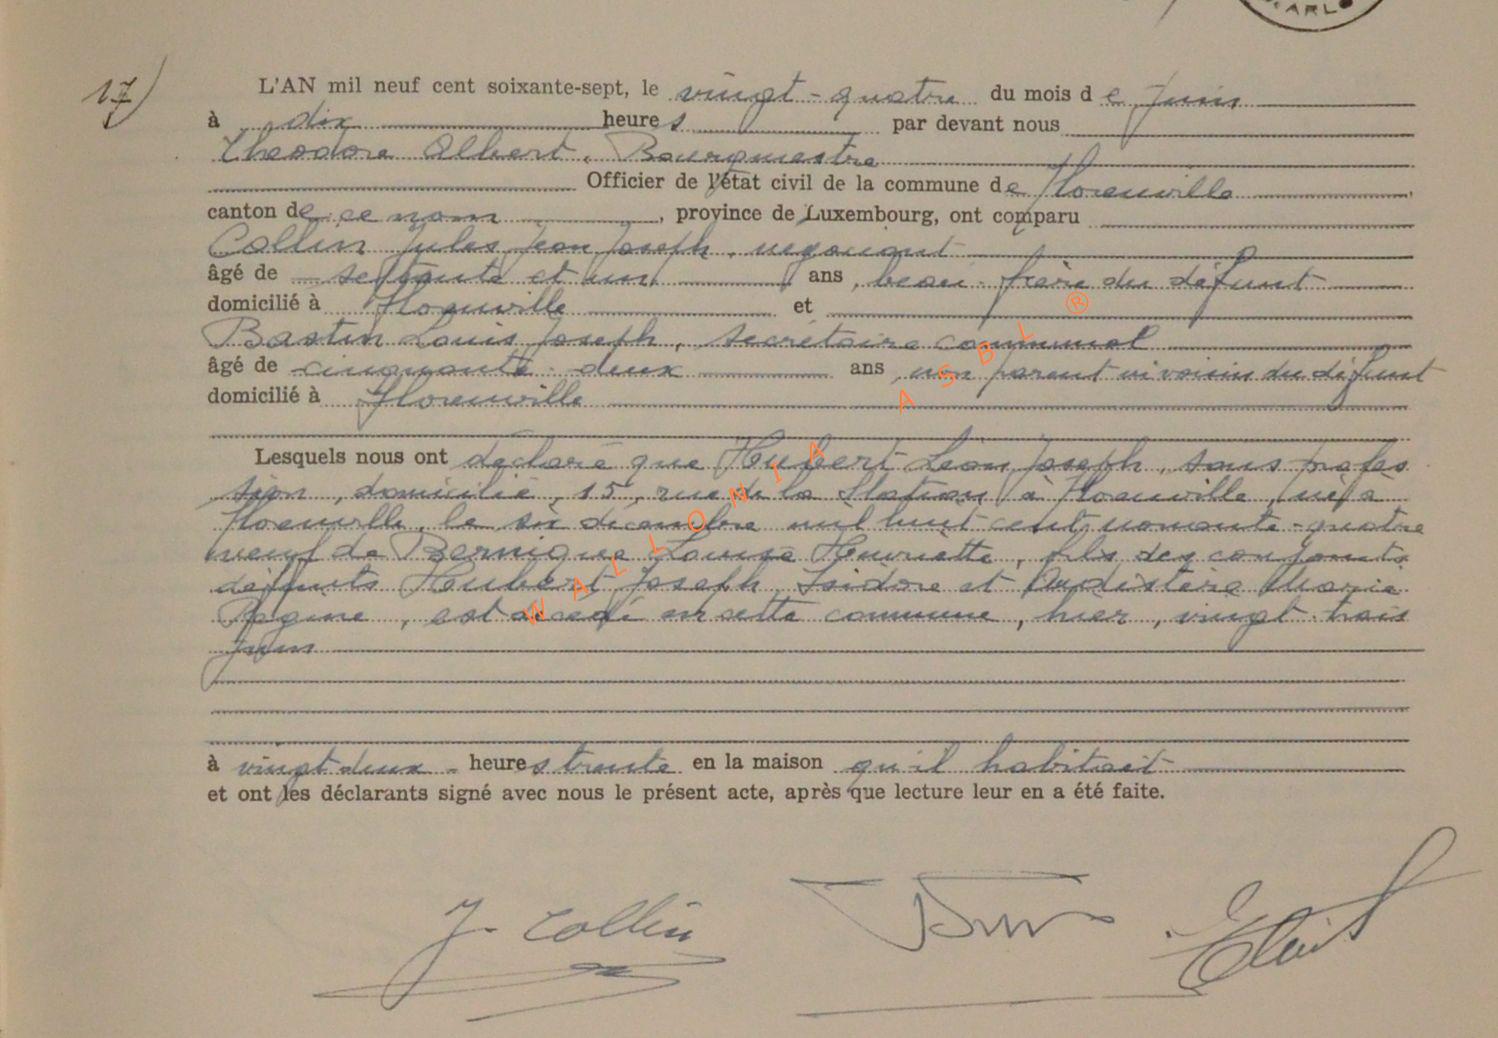 ARLO
17)
L'AN mil neuf cent soixante-sept, le vingt-quatre du mois de juin
à dix heures par devant nous
Théodore Albert, Bourgmestre
Officier de l'état civil de la commune de Florenville
canton de ce nom, province de Luxembourg, ont comparu
Collin Jules Jean Joseph, négociant
âgé de septante et un ans, beau-frère du défunt
domicilié à Florenville et
Bastin Louis Joseph, secrétaire communal
âgé de cinquante-deux ans, non parent ni voisin du défunt
domicilié à Florenville
Lesquels nous ont déclaré que Hubert Léon Joseph, sans profes
sion, domicilié, 15, rue de la Station à Florenville, né à
Florenville, le six décembre mil huit cent nonante-quatre
veuf de Bernique Louise Henriette, fils des conjoints
défunts Hubert Joseph Isidore et Marie
Régine, est décédé en cette commune, hier, vingt-trois
juin
à vingt-deux heures trente en la maison qu'il habitait
et ont les déclarants signé avec nous le présent acte, après que lecture leur en a été faite.
J. Collin
WALLONIA ASBL ®